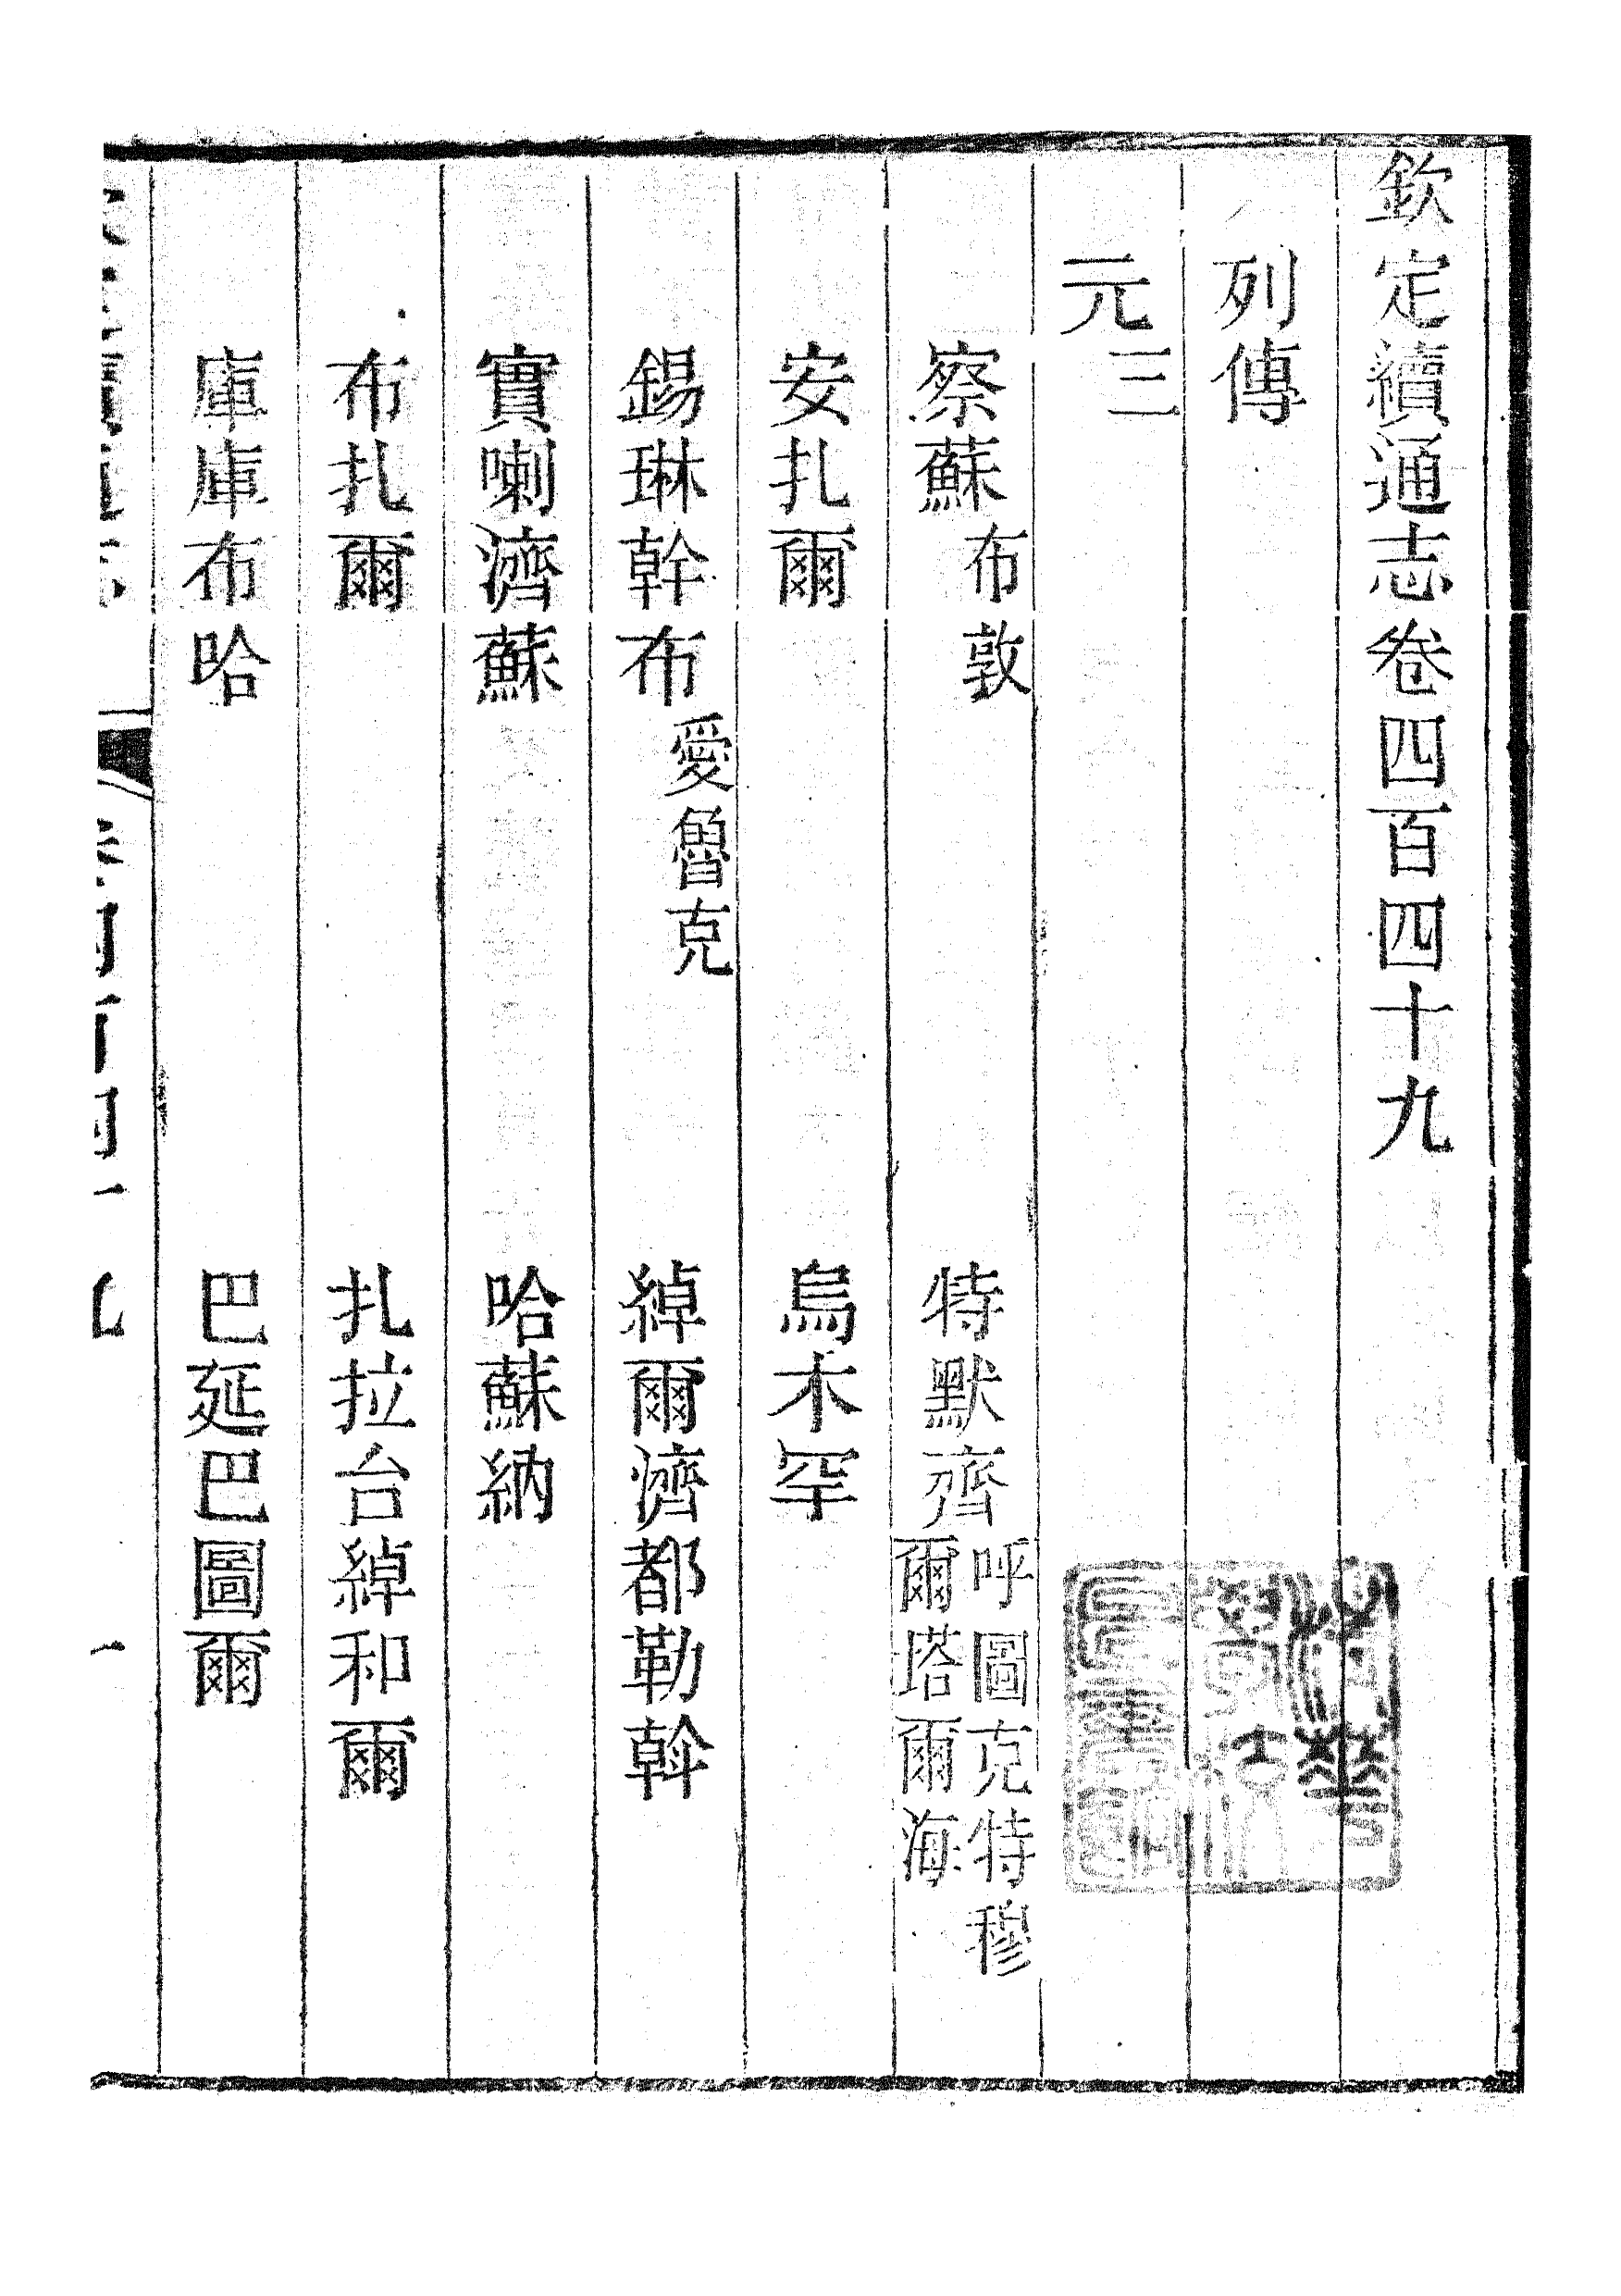 欽定續通志卷四百四十九
列傳
元三
察蘇布敦 特默齊呼圖克特穆爾塔爾海
安扎爾 烏木罕
錫琳幹布愛魯克 綽爾濟都勒斡
實喇濟蘇 哈蘇納
布扎爾 扎拉台綽和爾
庫庫布哈 巴延巴圖爾